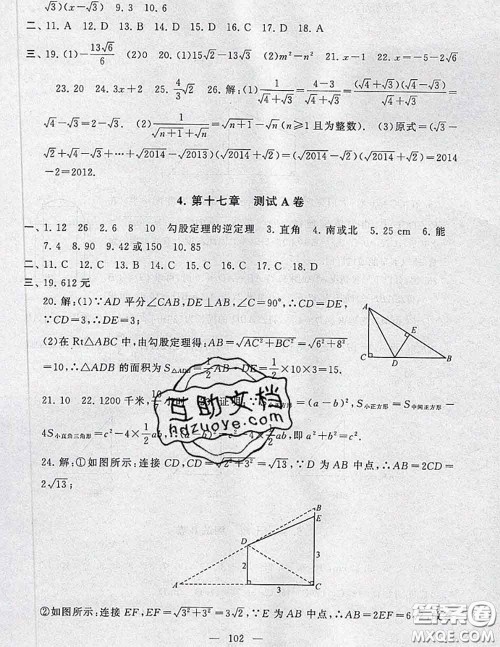 √3)(x-√3)  9.3  10.6
二、11.A  12.D  13.D  14.C  15.C  16.D  17.A  18.A
三、19.(1)-13√6/6  (2)0  20.(1)15√2-13√3  (2)m²-n²  21.x  22.x=-5-2√6
23.20  24.3x+2  25.4/3√3  26.解:(1)1/(√4+√3)=(4-3)/(√4+√3)=(√4+√3)(√4-√3)/(√4+√3)=
√4-√3=2-√3.  (2)1/(√(n+1)+√n)=√(n+1)-√n(n≥1且为整数).  (3)原式=(√6-
√5+√7-√6+…+√2014-√2013)(√2014+√5)=(√2014-√5)(√2014+√5)=2014
4.第十七章  测试A卷
一、1.12  26  2.6  8  10  勾股定理的逆定理  3.直角  4.南或北  5.25 cm  6.能
7.4  8.90  9.42或150  10.85
二、11.C  12.C  13.D  14.A  15.B  16.C  17.B  18.D
三、19.612元
20.解:(1)∵AD平分∠CAB,DE⊥AB,∠C=90°,∴CD=DE,
∵CD=3,∴DE=3;
(2)在Rt△ABC中,由勾股定理得:AB=√(AC²+BC²)=√(6²+8²)
=10,∴△ADB的面积为S△ADB=1/2 AB·DE=1/2×10×3=15.
A
E
C
D
B
21.10  22.1200千米,
=(a-b)²,S小正方形=S中间正方形-
4S小直角三角形=c²-4×1/2ab,即(a-b)²=c²-4×1/2ab
24.解:①如图所示:连接CD,CD=√(2²+3²)=√13,∵D为AB中点,∴AB=2CD=
2√13;
B
E
D
3
2
A
3
C
②如图所示:连接EF,EF=√(3²+3²)=3√2,∵E为AB中点,∴AB=2EF=6
— 102 —
互助文档
hdzuoye.com
答案圈
MXQE.COM